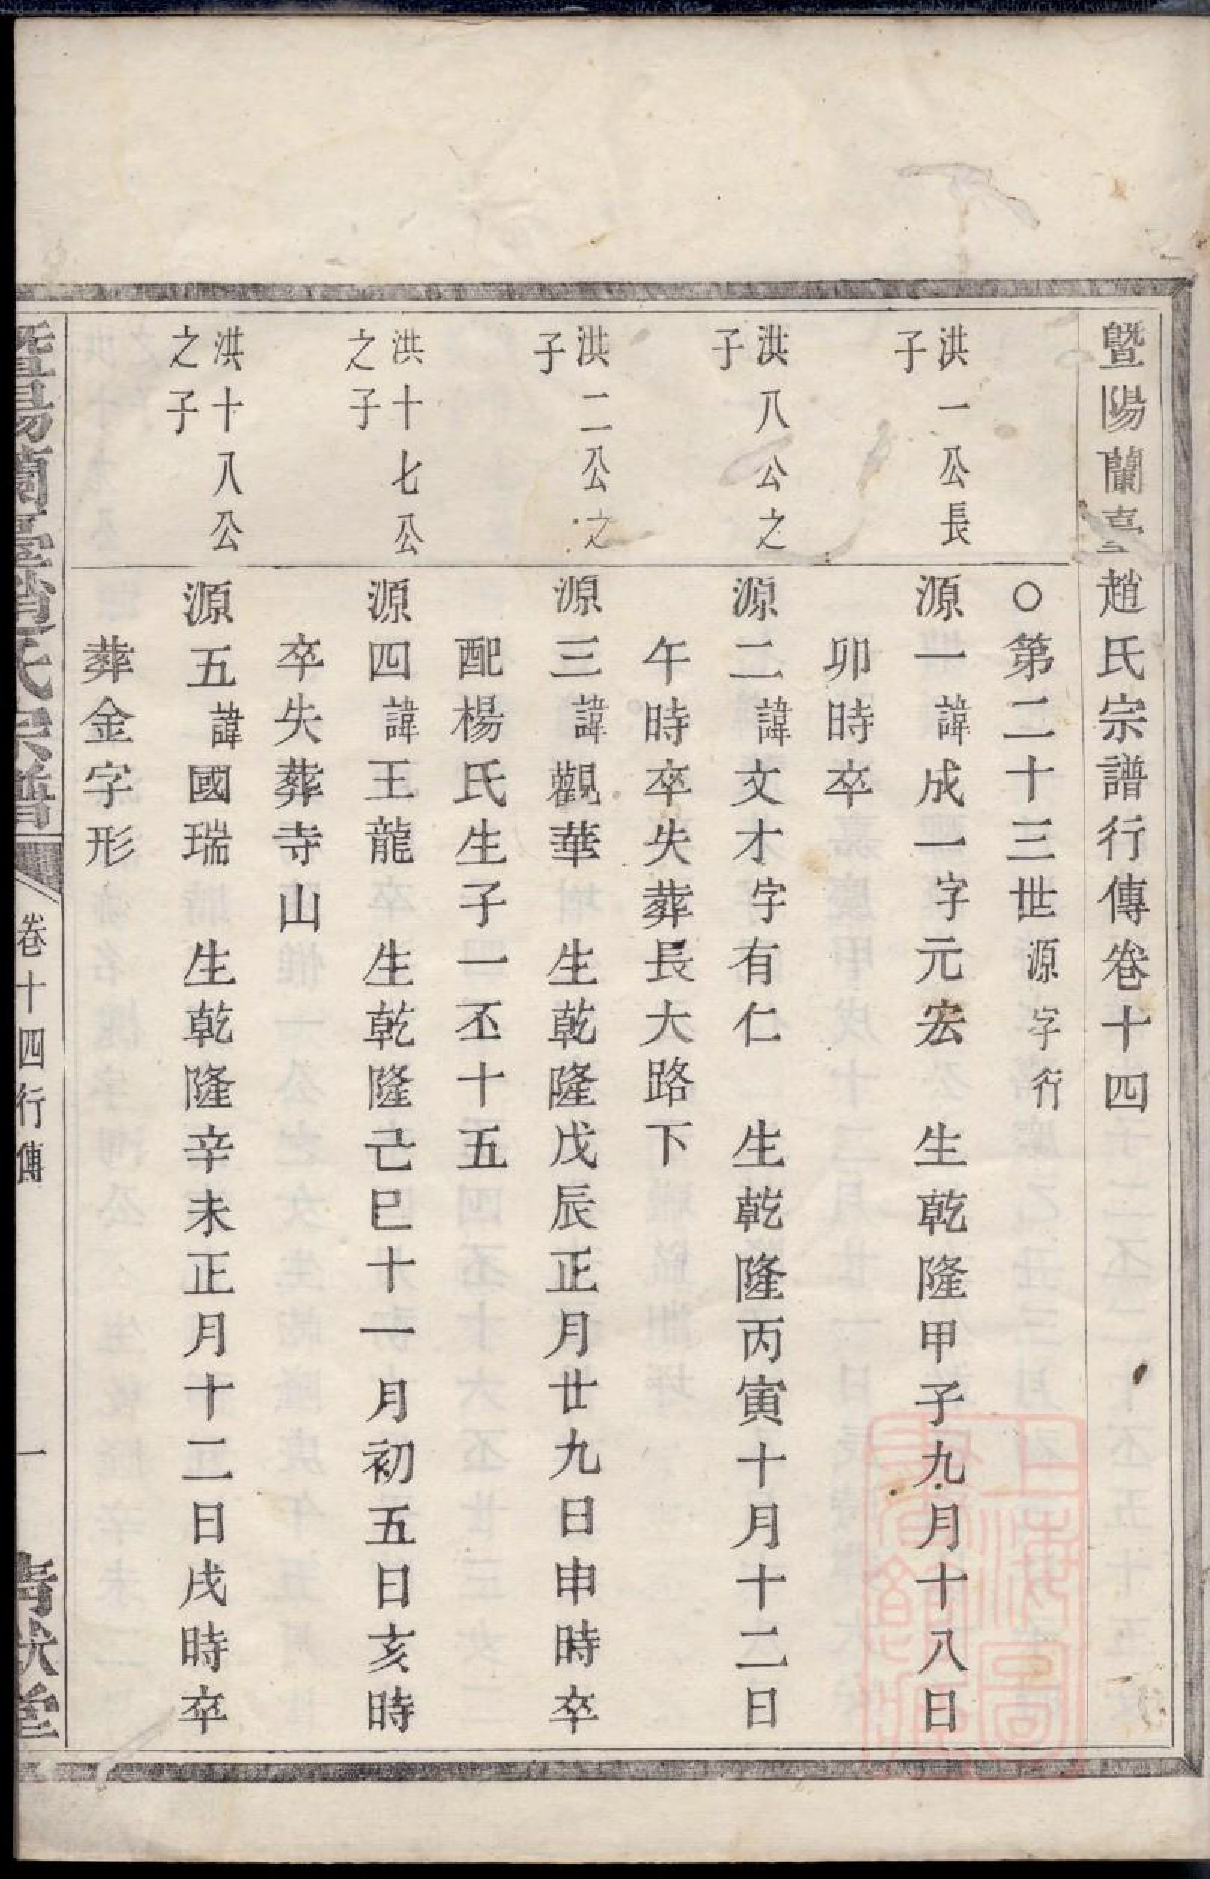 暨陽蘭臺趙氏宗譜行傳卷十四
○第二十三世源字行
洪一公長
子
源一諱成一字元宏　生乾隆甲子九月十八日
卯時卒
洪八公之
子
源二諱文才字有仁　生乾隆丙寅十月十二日
午時卒失葬長大路下
洪二公之
子
源三諱觀華　生乾隆戊辰正月廿九日申時卒
配楊氏生子一丕十五
洪十七公
之子
源四諱王龍　生乾隆己巳十一月初五日亥時
卒失葬寺山
洪十八公
之子
源五諱國瑞　生乾隆辛未正月十二日戌時卒
葬金字形
暨陽蘭臺趙氏宗譜
卷十四行傳
一
堂